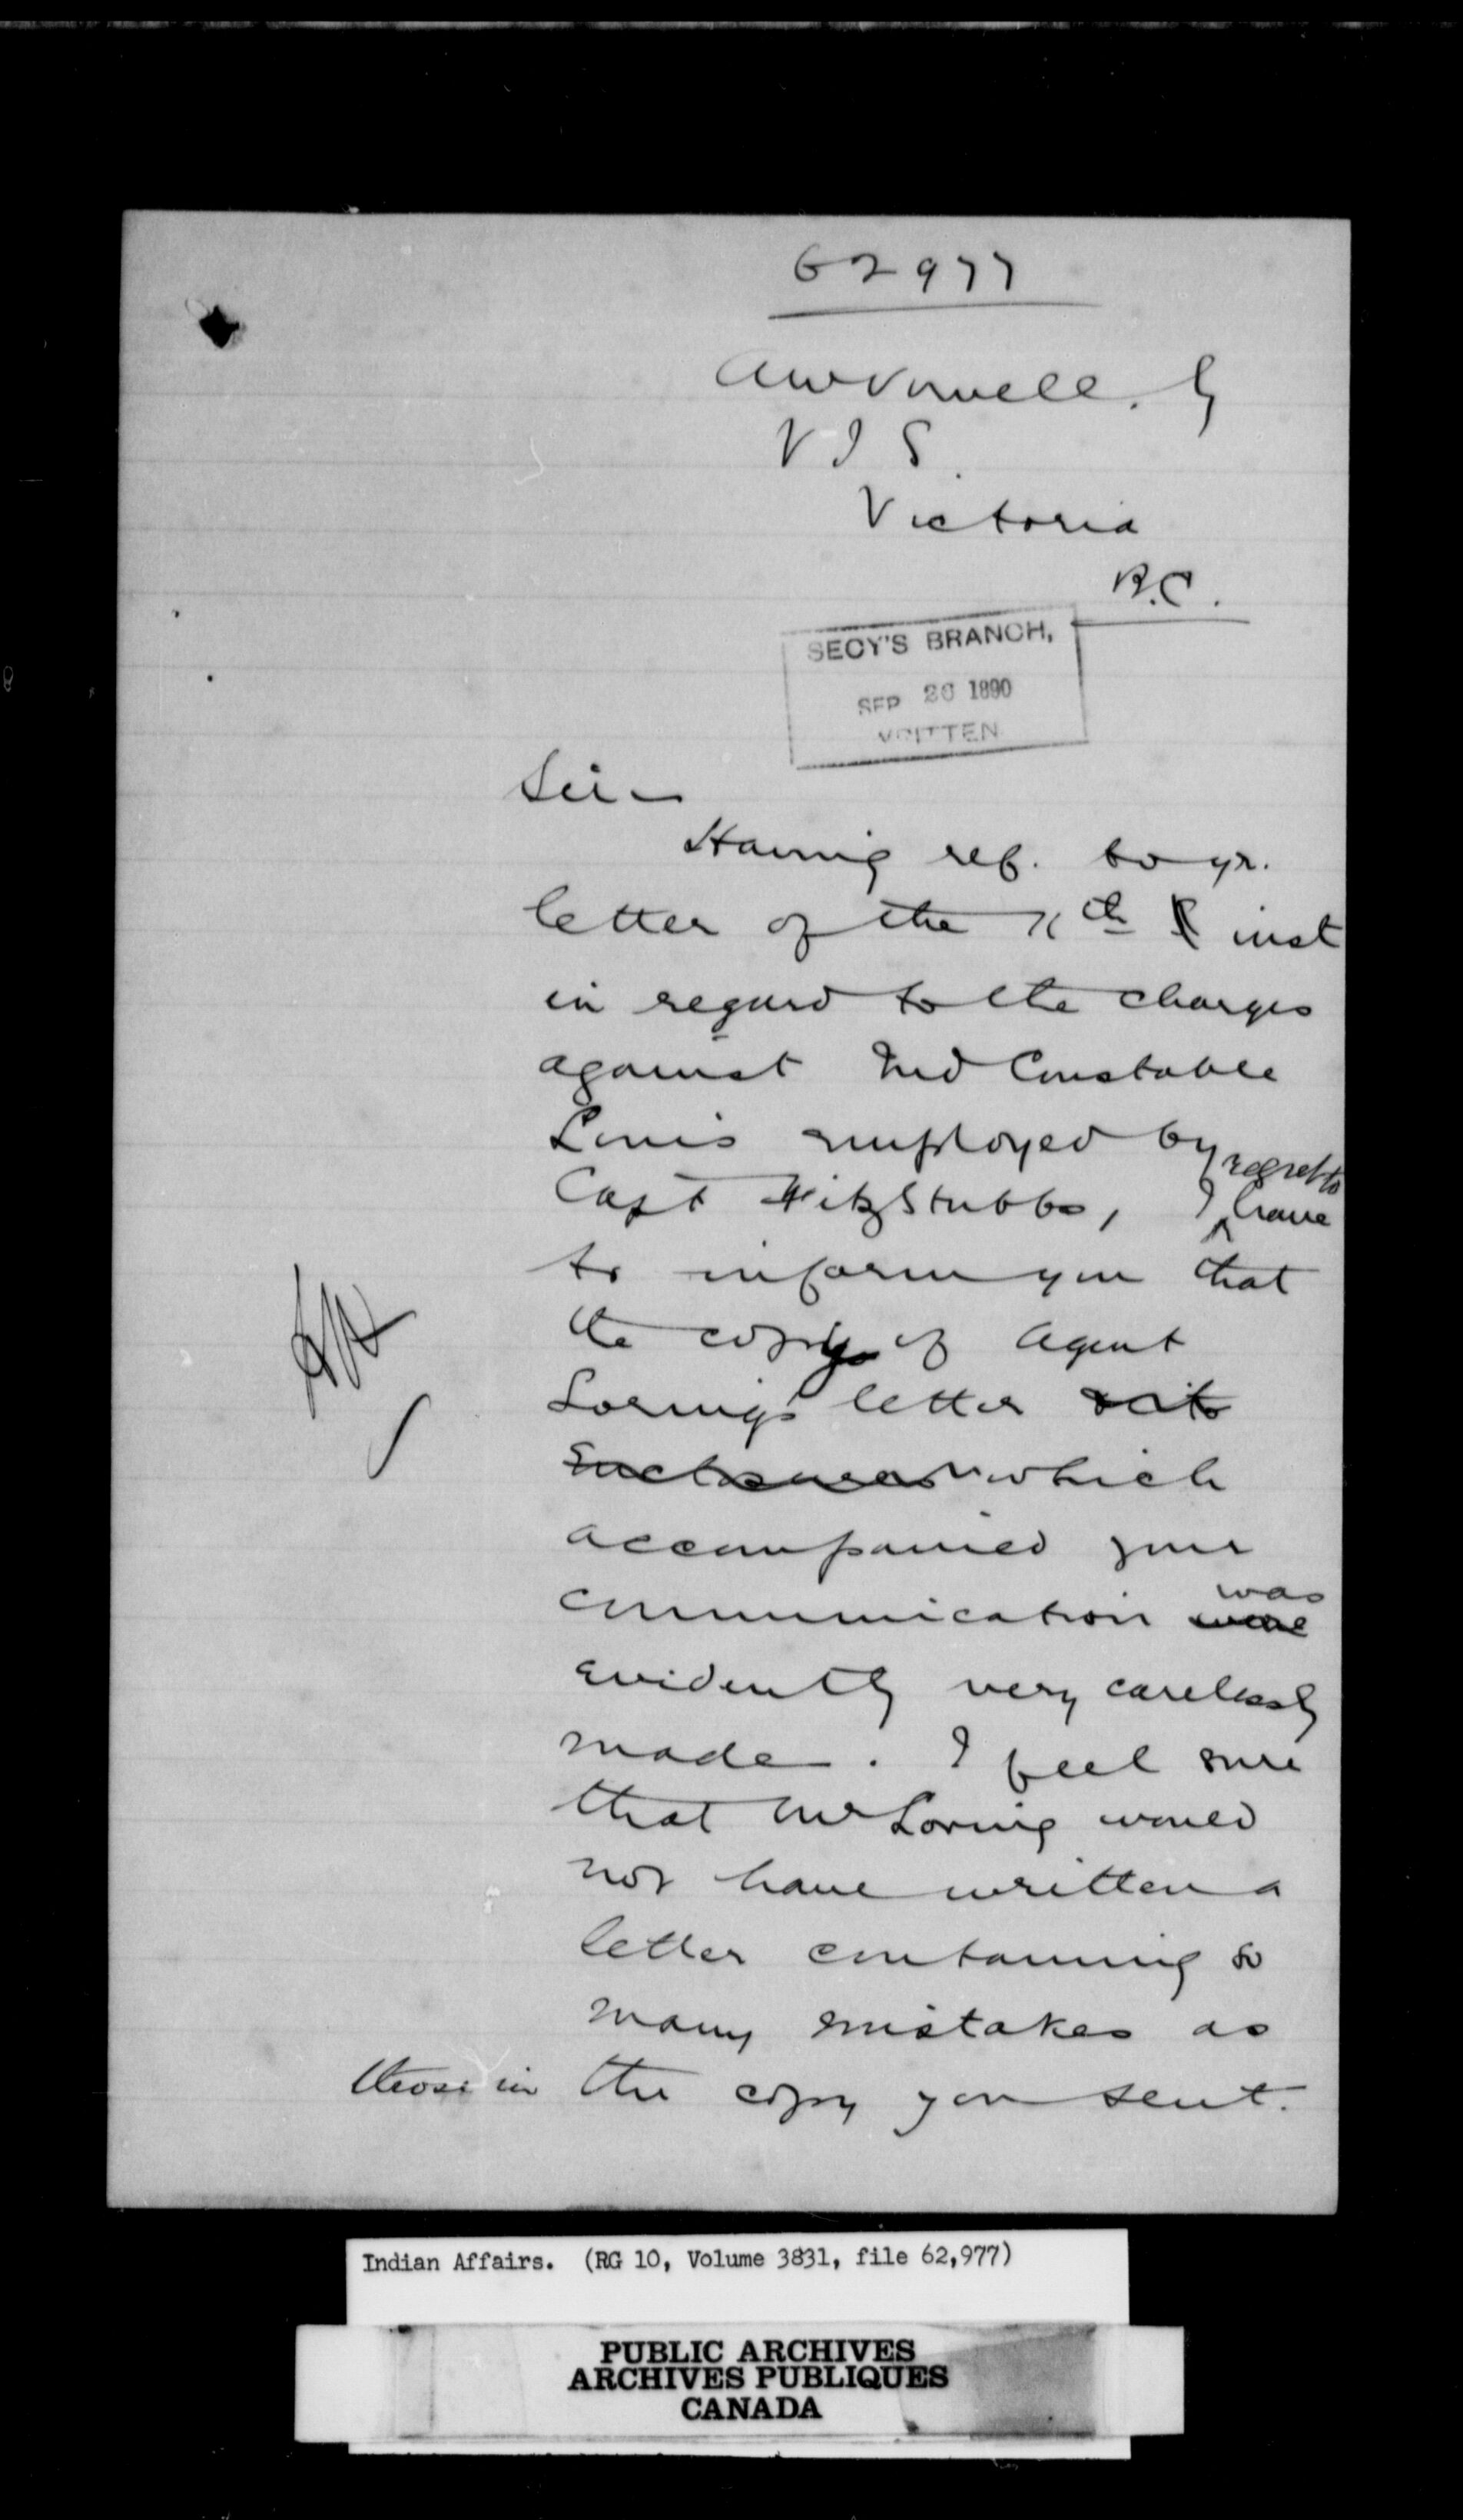 62977
A W Vowell. Esq
V I S.
Victoria
B.C.
SECY'S BRANCH,
SEP 26 1890
WRITTEN
Sir –
Having ref. to yr.
letter of the 11th inst
in regard to the charges
against Ind Constable
Louis employed by
regret to
Capt FitzStubbs, I have
to inform you that
the copy of Agent
Loring's letter & its
Enclosures which
accompanied your
was
communication were
evidently very carelessly
made. I feel sure
that Mr Loring would
not have written a
letter containing so
many mistakes as
those in the copy you sent.
Indian Affairs. (RG 10, Volume 3831, file 62,977)
PUBLIC ARCHIVES
ARCHIVES PUBLIQUES
CANADA